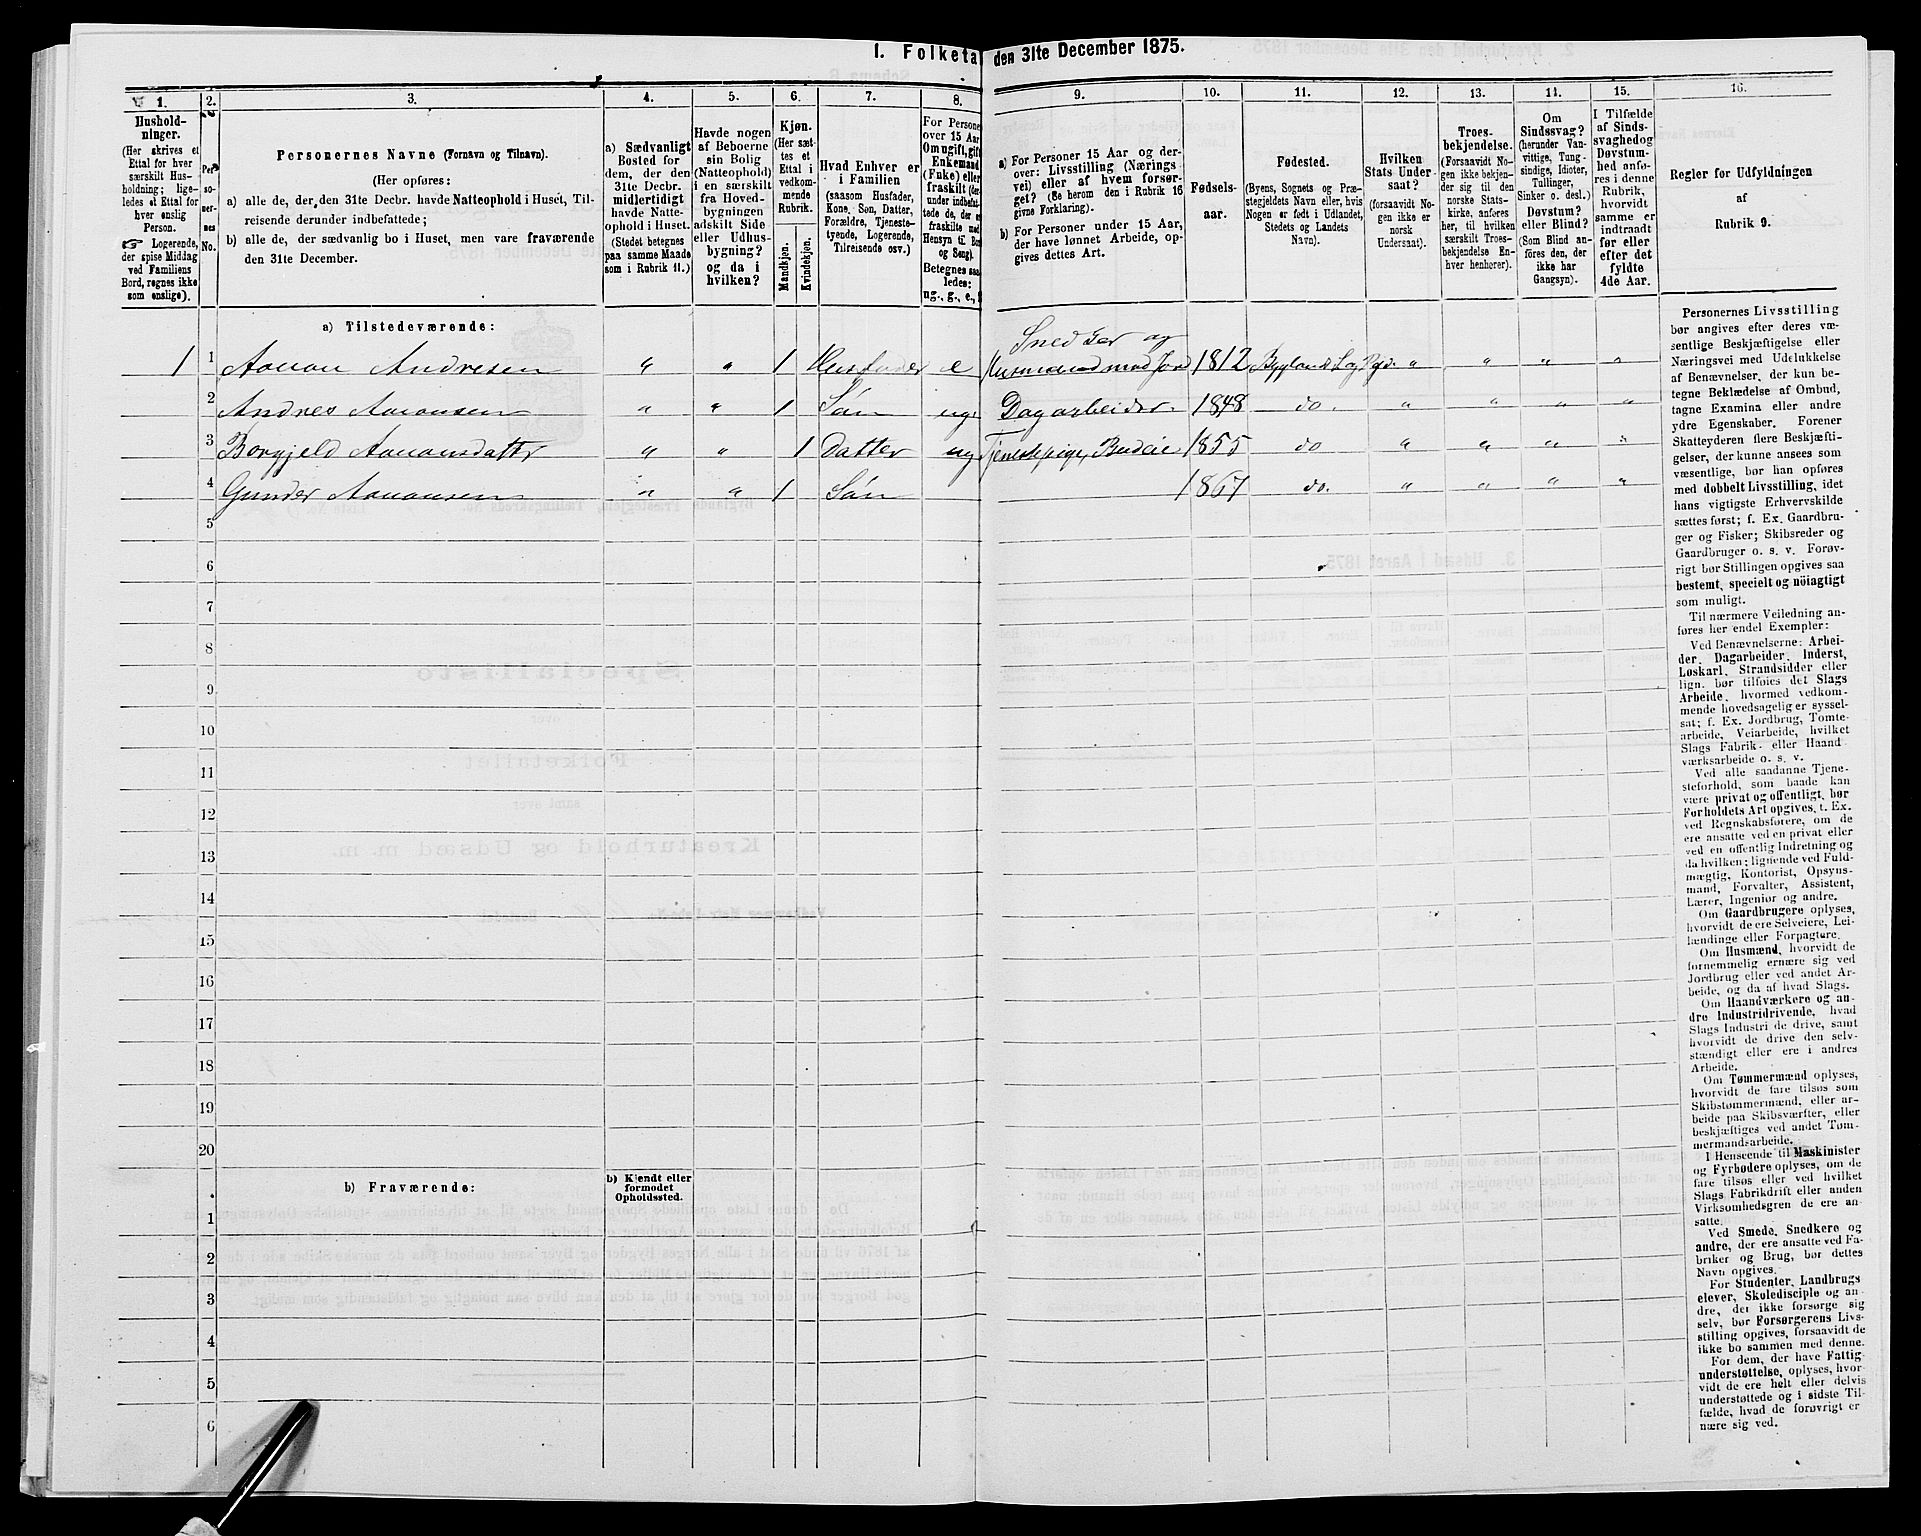 1. Folketa den 31te December 1875.
1. 2. 3. 4. 5. 6. 7. 8. 9. 10. 11. 12. 13. 14. 15. 16.
Hushold-
ninger.
(Her skrives et
Ettal for hver
særskilt Hus-
holdning; lige-
ledes et Ettal for
hver enslig
Person.
☞ Logerende,
der spise Middag
ved Familiens
Bord, regnes ikke
som enslige).
Per-
so-
ner-
nes
No.
Personernes Navne (Fornavn og Tilnavn).
(Her opføres:
a) alle de, der, den 31te Decbr. havde Natteophold i Huset, Til-
reisende derunder indbefattede;
b) alle de, der sædvanlig bo i Huset, men vare fraværende
den 31te December.
a) Sædvanligt
Bosted for
dem, der den
31te Decbr.
midlertidigt
havde Natte-
ophold i Huset.
(Stedet betegnes
paa samme Maade
som i Rubrik 11.)
Havde nogen
af Beboerne
sin Bolig
(Natteophold)
i en særskilt
fra Hoved-
bygningen
adskilt Side
eller Udhus-
bygning?
og da i
hvilken?
Kjøn.
(Her sæt-
tes et
Ettal i
vedkom-
mende
Rubrik.
Mandkjøn.
Kvindekjøn.
Hvad Enhver er
i Familien
(saasom Husfader,
Kone, Søn, Datter,
Forældre, Tjeneste-
tyende, Logerende,
Tilreisende osv.)
For Persone
over 15 Aar
Om ugift, gift
Enkemand
(Enke) eller
fraskilt (der
under indbefat-
tede de, der ere
fraskilte med
Hensyn til Bor
og Seng).
Betegnes saa-
ledes:
ug., g., e.,
a) For Personer 15 Aar og der-
over: Livsstilling (Nærings
vei) eller af hvem forsør-
get? (Se herom den i Rubrik 16
givne Forklaring).
b) For Personer under 15 Aar,
der have lønnet Arbeide, op-
gives dettes Art.
Fødsels-
aar.
Fødested.
(Byens, Sognets og Præ-
stegjeldets Navn eller, hvis
Nogen er født i Udlandet,
Stedets og Landets
Navn).
Hvilken
Stats Under-
saat?
(forsaavidt No-
gen ikke er
norsk
Undersaat).
Troes-
bekjendelse.
(Forsaavidt No-
gen ikke bekjen-
der sig til den
norske Stats-
kirke, anføres
her, til hvilken
særskilt Troes-
bekjendelse En-
hver henhører).
Om
Sindssvag?
(herunder Van-
vittige, Tung-
sindige, Idioter,
Tullinger,
Sinker o. desl.)
Døvstum?
eller Blind?
(Som Blind an-
føres den, der
ikke har
Gangsyn).
I Tilfælde
af Sinds-
svaghed og
Døvstum-
hed anfø-
res i denne
Rubrik,
hvorvidt
samme er
indtraadt
før eller
efter det
fyldte
4de Aar.
Regler for Udfyldningen
af
Rubrik 9.
a) Tilstedeværende:
Snedker og
1 1 Aanon Andresen " " 1 Husfader e Husmand med Jord 1812 Bygland S. og Pgd. " " " "
2 Andres Aanonsen " " 1 Søn ug. Dagarbeider. 1848 do. " " " "
3 Borgjeld Aanonsdatter " " 1 Datter ug Tjenestepige, Budeie 1855 do " " " "
4 Gunder Aanonsen " " 1 Søn 1867 do. " " " "
5
6
7
8
9
10
11
12
13
14
15
16
17
18
19
20
b) Fraværende:
b) Kjendt eller
formodet
Opholdssted.
1
2
3
4
5
6
Personernes Livsstilling
bør angives efter deres væ-
sentlige Beskjæftigelse eller
Næringsvei med Udelukkelse
af Benævnelser, der kun be-
tegne Beklædelse af Ombud,
tagne Examina eller andre
ydre Egenskaber. Forener
Skatteyderen flere Beskjæfti-
gelser, der kunne ansees som
væsentlige, bør han opføres
med dobbelt Livsstilling, idet
hans vigtigste Erhvervskilde
sættes først; f. Ex. Gaardbru-
ger og Fisker; Skibsreder og
Gaardbruger o. s. v. Forøv-
rigt bør Stillingen opgives saa
bestemt, specielt og nöiagtigt
som muligt.
Til nærmere Veiledning an-
føres her endel Exempler:
Ved Benævnelserne: Arbei-
der, Dagarbeider, Inderst,
Løskarl, Strandsidder eller
lign. bør tilføies det Slags
Arbeide, hvormed vedkom-
mende hovedsagelig er syssel-
sat; f. Ex. Jordbrug, Tomte-
arbeide, Veiarbeide, hvilket
Slags Fabrik- eller Haand
værksarbeide o. s. v.
Ved alle saadanne Tjene-
steforhold, som baade kan
være privat og offentligt, bør
Forholdets Art opgives, t. Ex.
ved Regnskabsførere, om de
ere ansatte ved en privat eller
ved en offentlig Indretning og
da hvilken; lignende ved Fuld-
mægtig, Kontorist, Opsyns-
mand, Forvalter, Assistent,
Lærer, Ingeniør og andre.
Om Gaardbrugere oplyses,
hvorvidt de ere Selveiere, Lei-
lændinge eller Forpagtere.
Om Husmænd, hvorvidt de
fornemmelig ernære sig ved
Jordbrug eller ved andet Ar-
beide, og da af hvad Slags.
Om Haandværkere og an-
dre Industridrivende, hvad
Slags Industri de drive, samt
hvorvidt de drive den selv-
stændigt eller ere i andres
Arbeide.
Om Tømmermænd oplyses,
hvorvidt de fare tilsøs som
Skibstømmermænd, eller ar-
beide paa Skibsværfter, eller
beskjæftiges ved andet Tøm-
mermandsarbeide.
I Henseende til Maskinister
og Fyrbødere oplyses, om de
fare tilsøs eller ved hvilket
Slags Fabrikdrift eller anden
Virksomhedsgren de ere an-
satte.
Ved Smede, Snedkere og
andre, der ere ansatte ved Fa-
briker og Brug, bør dettes
Navn opgives.
For Studenter, Landbrugs
elever, Skoledisciple og an-
dre, der ikke forsørge sig
selv, bør Forsørgerens Livs-
stilling opgives, forsaavidt de
ikke bo sammen med denne.
For dem, der have Fattig-
understøttelse, oplyses, hvor-
vidt de ere helt eller delvis
understøttede og i sidste Til-
fælde, hvad de forøvrigt er
nære sig ved.